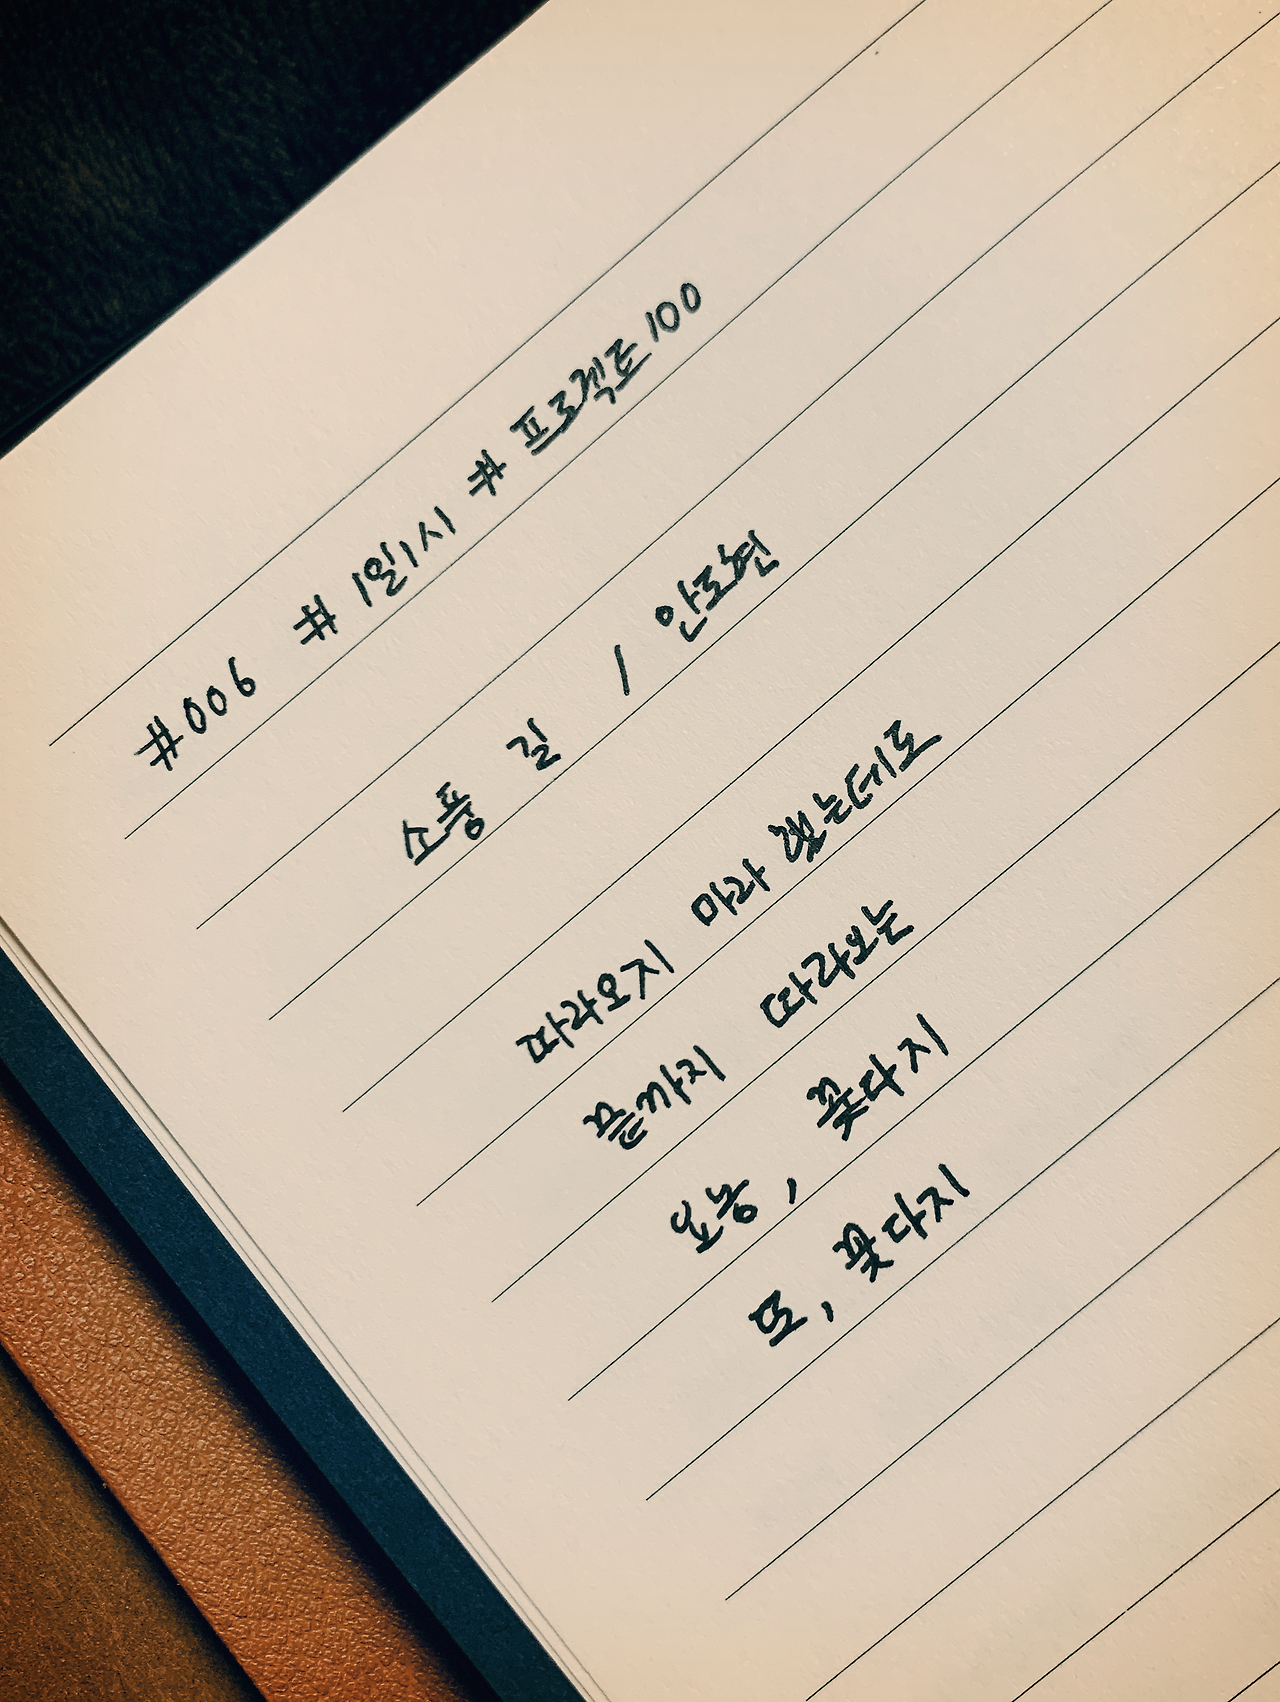 #006 #1일1시 #프로젝트100
소풍 길 / 안도현
따라오지 마라 했는데도
끝까지 따라오는
요놈, 꽃다지
또, 꽃다지